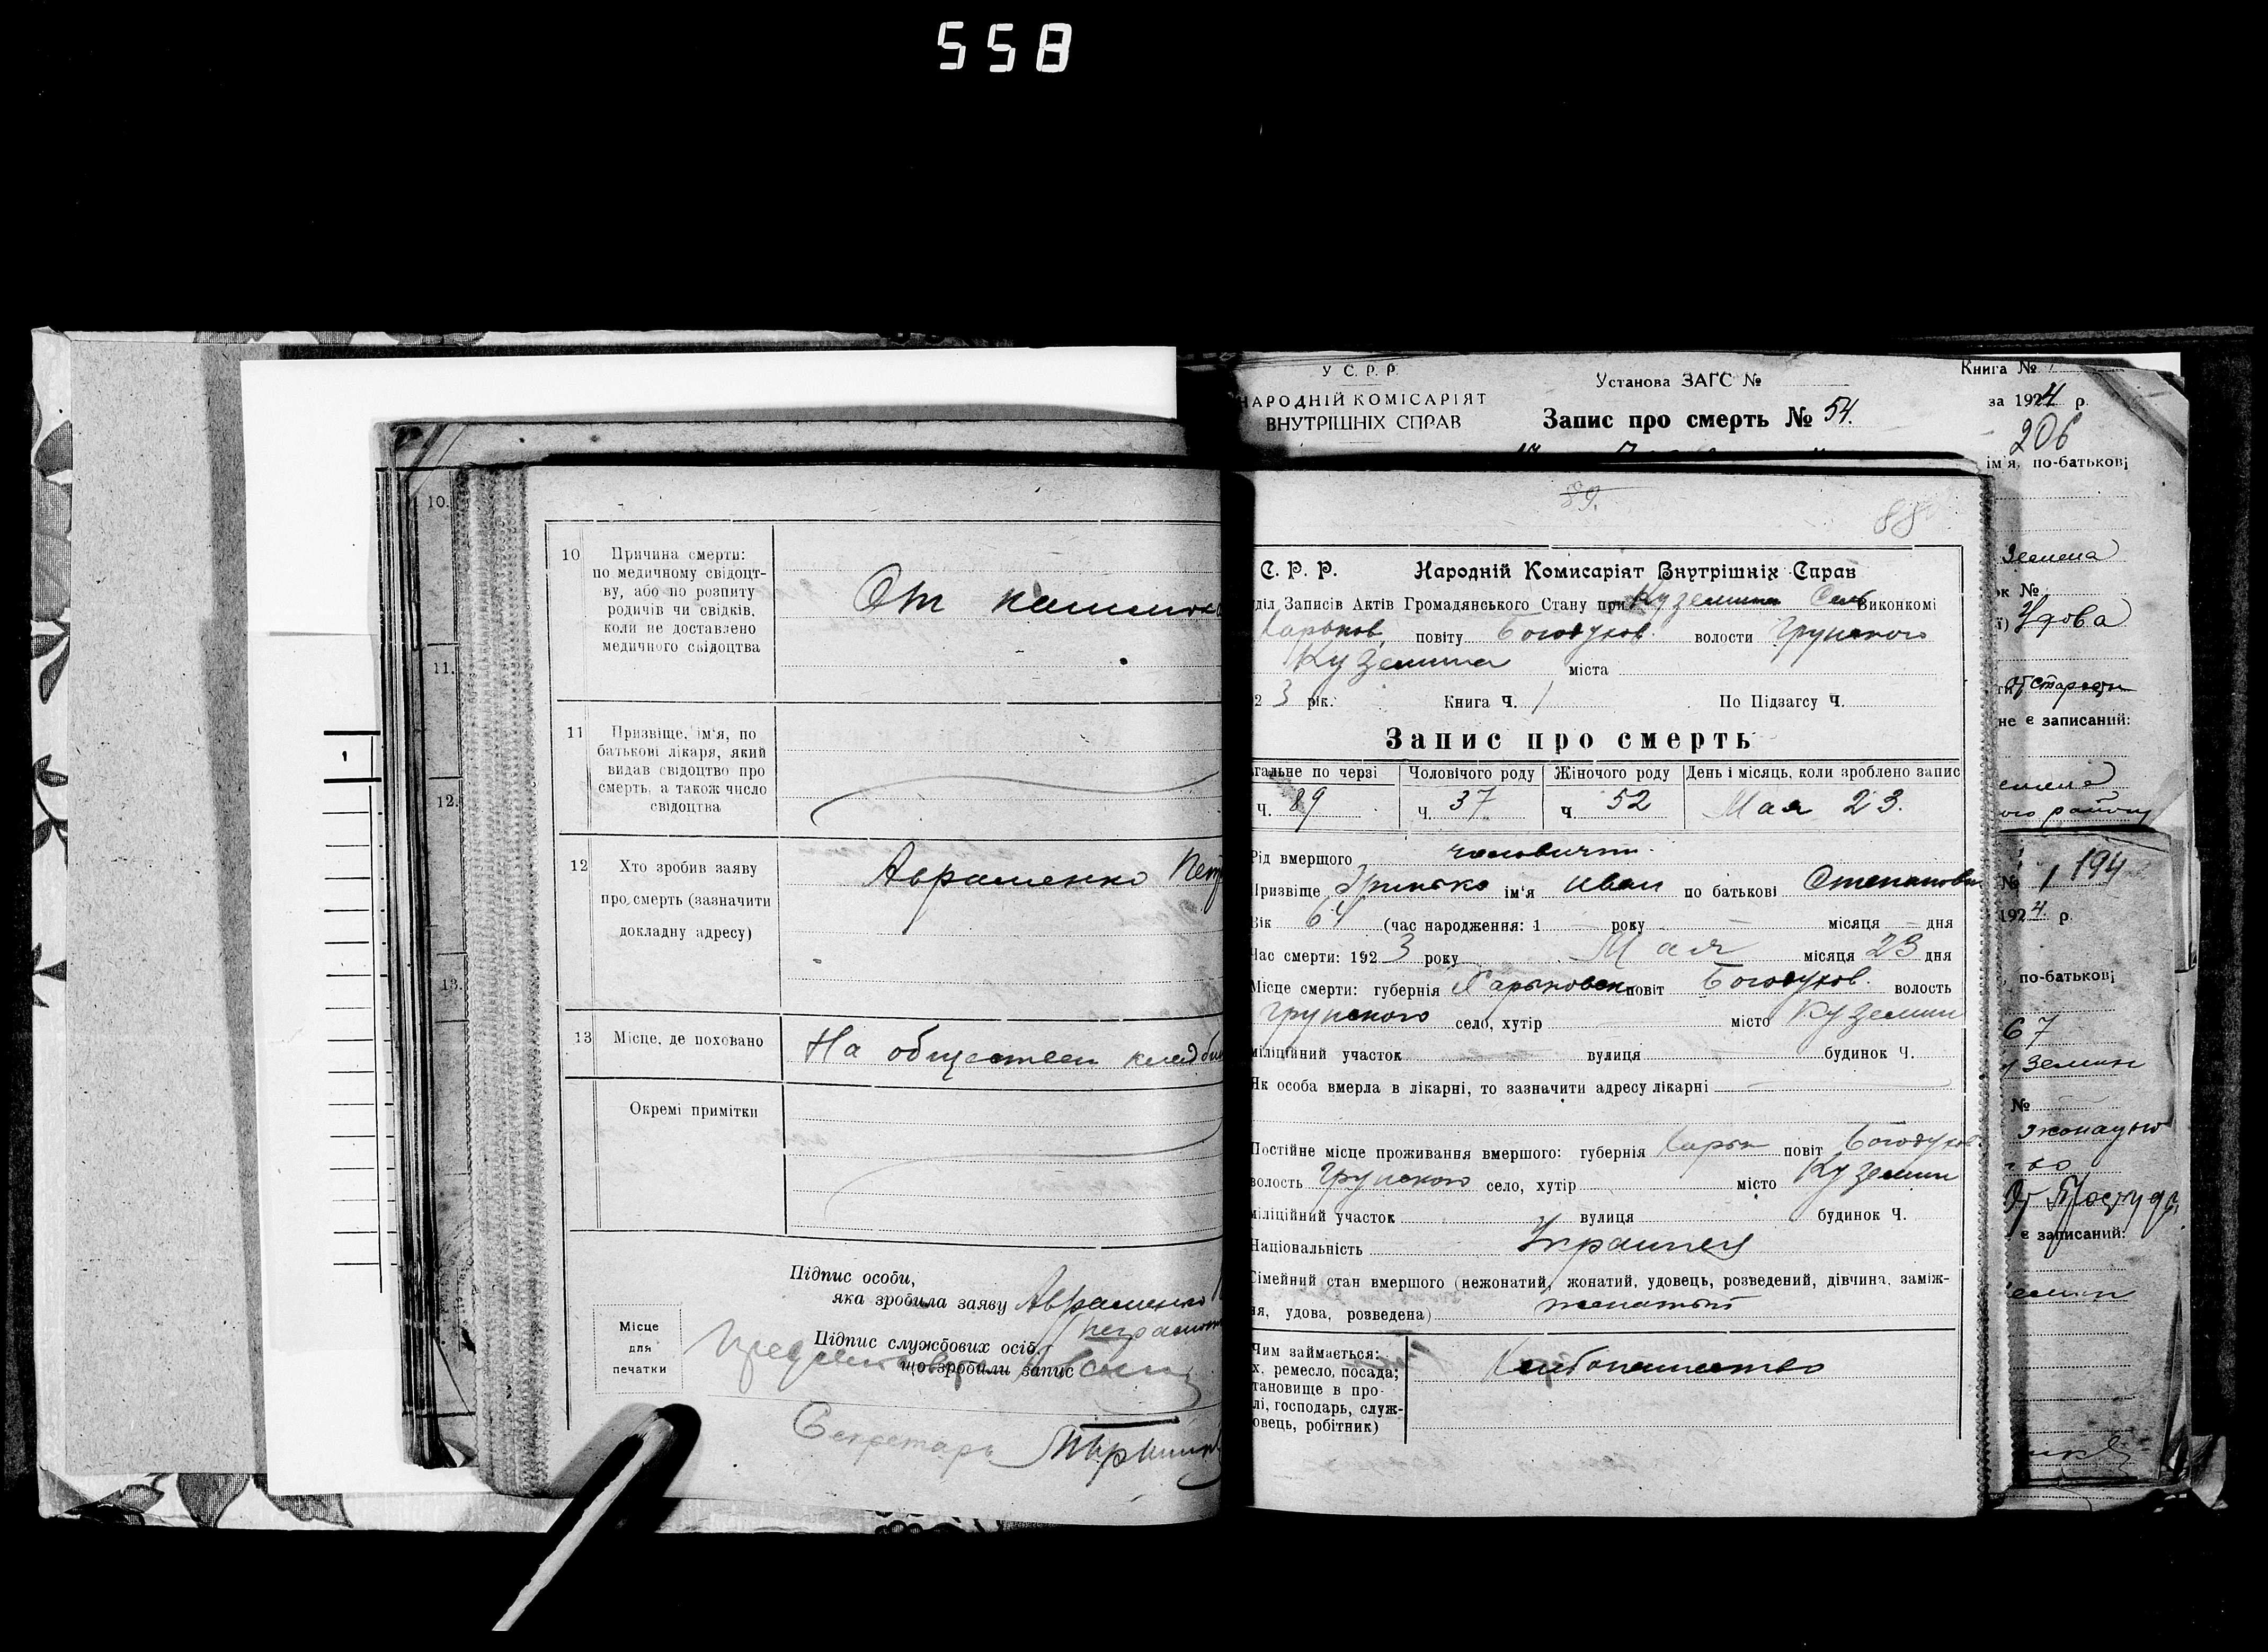 558
10.
11.
12.
13.
1
10 Причина смерти:
по медичному свідоцт-
ву, або по розпиту
родичів чи свідків,
коли не доставлено
медичного свідоцтва
От
11 Призвіще, ім'я, по
батькові лікаря, який
видав свідоцтво про
смерть, а також число
свідоцтва
12 Хто зробив заяву
про смерть (зазначити
докладну адресу)
Авраменко
13 Місце, де поховано
На обществен кладби
Окремі примітки
Підпис особи,
яка зробила заяву Авраменко
Місце
для
печатки
Підпис службових осіб,
що зробили запис
Секретарь
У С. Р. Р.
НАРОДНІЙ КОМІСАРІЯТ
ВНУТРІШНІХ СПРАВ
Установа ЗАГС №
Запис про смерть № 54.
Книга №
за 1924 р.
206
ім'я, по-батькові
89.
88
С. Р. Р. Народній Комисаріят Внутрішніх Справ
діл Записів Актів Громадянського Стану при Куземина Сель виконкомі
Харьков, повіту Богодухов. волости Грунского
Куземина міста
2 3 рік. Книга Ч. 1 По Підзагсу Ч.
Запис про смерть
гальне по черзі Чоловічого роду Жіночого роду День і місяць, коли зроблено запис
Ч. 89 Ч. 37 Ч. 52 Мая 23.
Рід вмерщого человичт.
Призвіще Гринько ім'я Иван по батькові Степанови
Вік 64 (час народження: 1 року місяця дня
Час смерти: 192 3 року Мая місяця 23 дня
Місце смерти: губернія Харьковск повіт Богодухов. волость
Грунского село, хутір місто Куземин
міліційний участок вулиця будинок Ч.
Як особа вмерла в лікарні, то зазначити адресу лікарні
Постійне місце проживання вмершого: губернія Харьк повіт Богодухов
волость Грунского село, хутір місто Куземин
міліційний участок вулиця будинок Ч.
Національність Украинец
Сімейний стан вмершого (нежонатий, жонатий, удовець, розведений, дівчина, заміж-
ня, удова, розведена) женатый
Чим займається:
х. ремесло, посада;
тановище в про-
лі, господарь, служ-
овець, робітник)
Хлебопашество
№
Удова
От старости
не є записаний:
ого району
№ 1 194
1924 р.
по-батькові
67
№
От Простуды
є записаний: